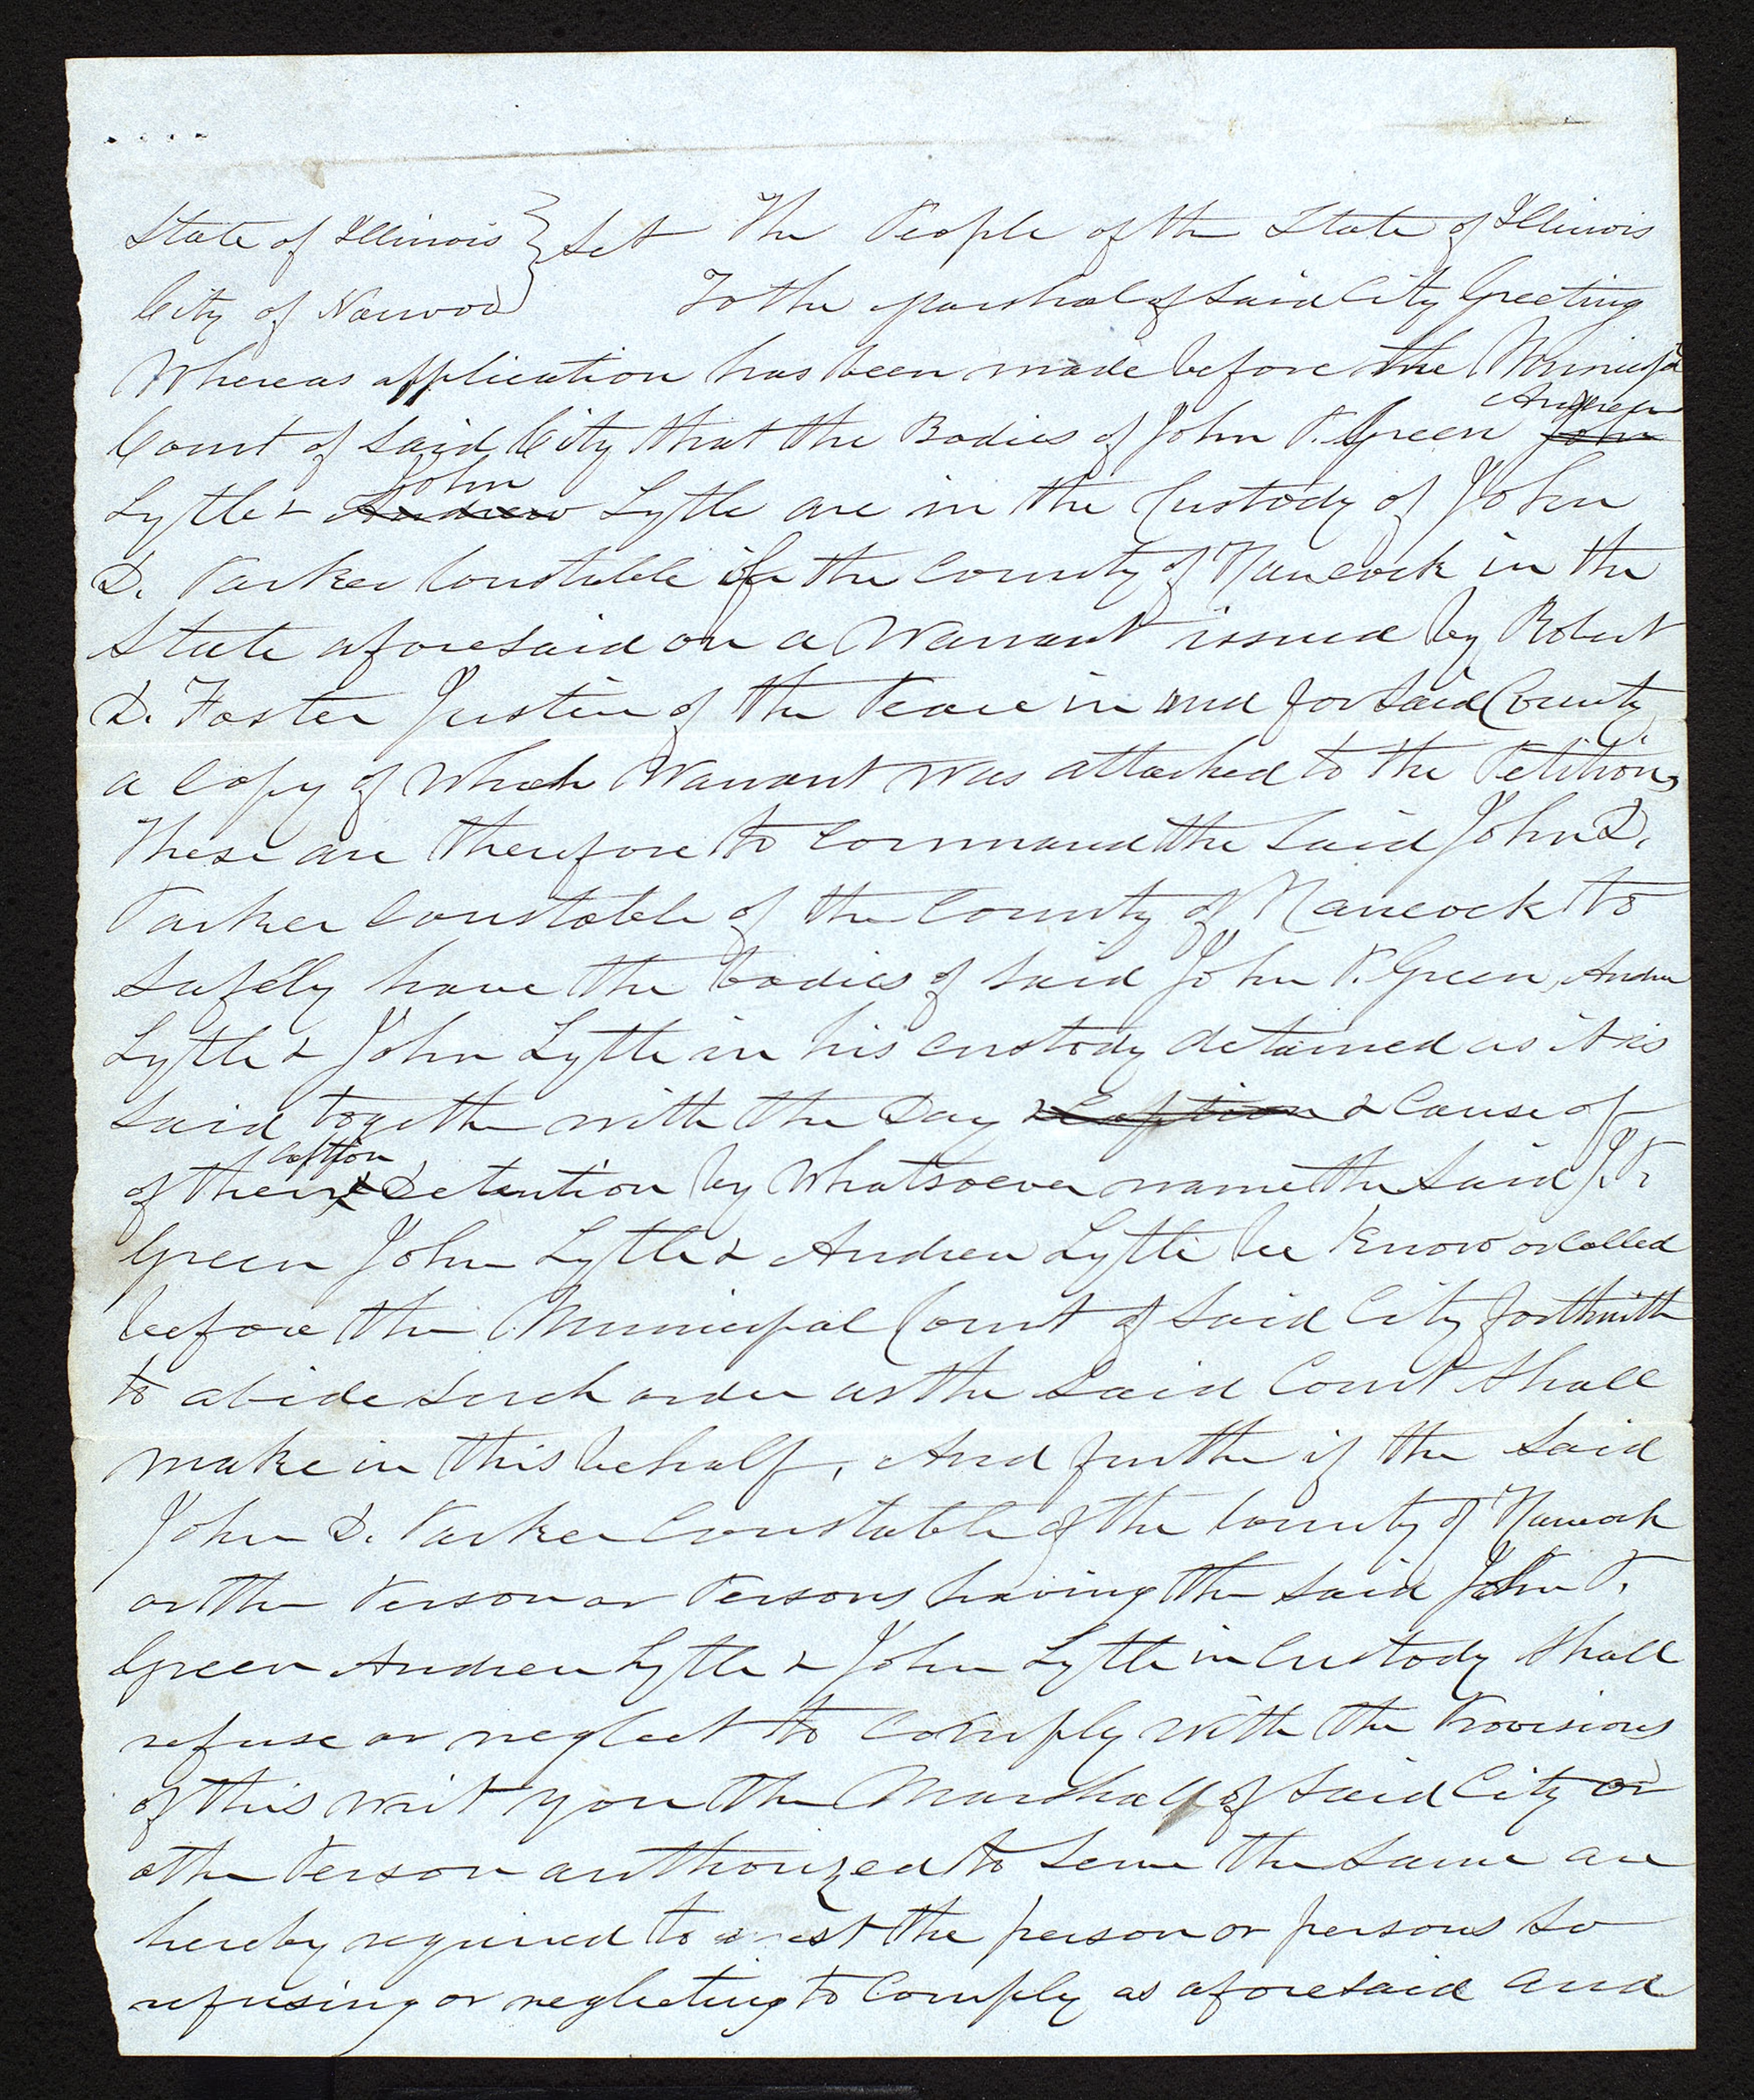 State of Illinois } Sct The People of the State of Illinois
City of Nauvoo } To the Marshal of Said City Greeting
Whereas application has been made before the Municipal
Court of Said City that the Bodies of John P. Green Andrew John
Lytle & John Andrew Lytle are in the Custody of John
D. Parker Constable of the County of Hancock in the
State aforesaid on a Warrant issued by Robert
D. Foster Justice of the Peace in and for Said County
a Copy of Which Warrant was attached to the Petition,
These are therefore to Command the Said John D.
Parker Constable of the County of Hancock to
Safely have the bodies of Said John P. Green, Andrew
Lytle & John Lytle in his custody detained as it is
Said together with the Day & Caption & Cause of
of their caption & Detention by Whatsoever name the Said J. P.
Green John Lytle & Andrew Lytle be Know or Called
before the Municipal Court of Said City forthwith
to abide Such order as the Said Court Shall
make in this behalf, And further if the Said
John D. Parker Constable of the County of Hancock
or the Person or Persons having the Said John P.
Green Andrew Lytle & John Lytle in Custody Shall
refuse or neglect to Comply with the Provisions
of this writ you the Marshall of Said City or
other Person authorized to Serve the Same are
hereby required to arrest the person or persons So
refusing or neglecting to Comply as aforesaid and